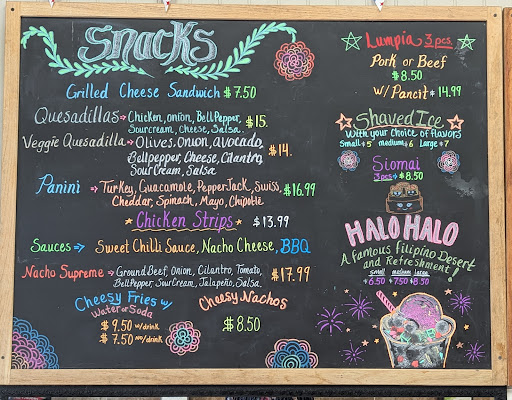 Snacks
Grilled Cheese Sandwich $7.50
Quesadillas → Chicken, onion, Bell Pepper, $15.
Sourcream, Cheese, Salsa.
Veggie Quesadilla → Olives, Onion, avocado, $14.
Bellpepper, Cheese, Cilantro,
Sour Cream, Salsa
Panini → Turkey, Guacamole, PepperJack, Swiss, $16.99
Cheddar, Spinach, Mayo, Chipotle
Chicken Strips $13.99
Sauces → Sweet Chilli Sauce, Nacho Cheese, BBQ
Nacho Supreme → Ground Beef, Onion, Cilantro, Tomato, $17.99
Bell Pepper, Sour Cream, Jalapeño, Salsa.
Cheesy Fries w/
Water or Soda
$9.50 w/drink
$7.50 no/drink
Cheesy Nachos
$8.50
Lumpia 3 pcs.
Pork or Beef
$8.50
w/ Pancit $14.99
Shaved Ice
With your Choice of flavors
Small $5 medium $6 Large $7
Siomai
3 pcs → $8.50
HALO HALO
A famous filipino Desert
and Refreshment!
small medium large
$6.50 $7.50 $8.50